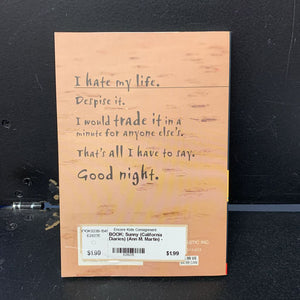 I hate my life.
Despise it.
I would trade it in a
minute for anyone else's.
That's all I have to say.
Good night.
Encore Kids Consignment
BOOK: Sunny (California
Diaries) (Ann M. Martin) -
$1.99
$1.99